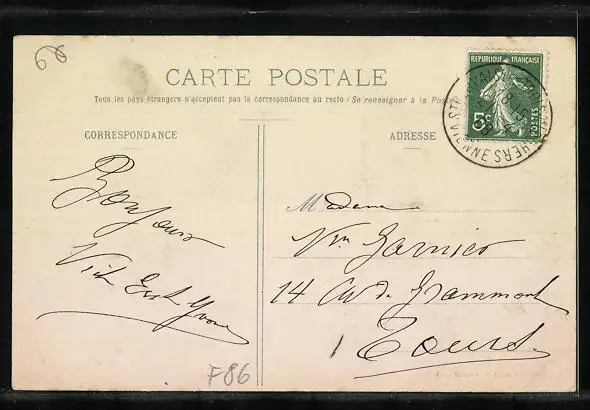 CARTE POSTALE
Tous les pays étrangers n'acceptent pas la correspondance au recto (Se renseigner à la Poste
CORRESPONDANCE
ADRESSE
REPUBLIQUE FRANÇAISE
5c
POSTES
Bonjour
Madame
Vve Garnier
14 Av de Grammont
Tours
F86